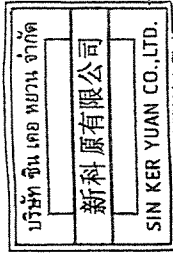 บริษัท ซิน เคอ หยวน จำกัด
新科原有限公司
SIN KER YUAN CO.,LTD.